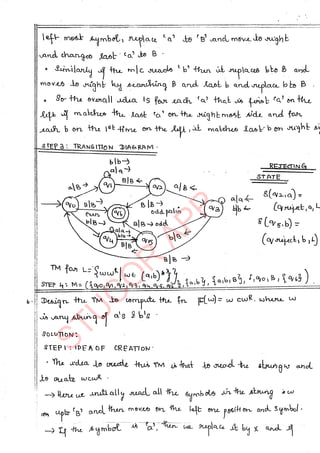 left most symbol, replace 'a' to 'B' and move to right
and changes last 'a' to B.
• Similarly if the m/c reads 'b' then it replaces b to B and
moves to right by searching B and last b and replace b to B.
• So the overall idea is for each 'a' that is first 'a' on the
left if matches the last 'a' on the rightmost side and for
each b on the 1st time on the left, it matches last 'b' on right si
STEP 3: TRANSITION DIAGRAM:
b|b→
a|a→
REJECTING
STATE
a|B→
q1
B|B←
q2
a|B←
δ(q2,a) =
(qreject, a, L
q0
B|B→
q6
B|B→
odd palin
q3
a|a←
b|b←
b|B→
a|B→ odd
δ(q5,b) =
(qreject, b, L)
a|a→
q4
B|B←
q5
b|B←
B|B→
TM for L = { wwR | w∈(a,b)* }
STEP 4: M = ({q0,q1,q2,q3,q4,q5,q6}, {a,b}, {a,b,B}, δ, q0, B, {q6})
6. Design the TM to compute the fn F(w) = w cwR. where w
is any string of a's & b's.
SOLUTION:
STEP 1: IDEA OF CREATION:
• The idea to create this TM is that to read the string w and
to create wcwR.
→ Here we initially read all the symbols in the string w
upto 'B' and then moves on the left one position and symbol.
→ If the symbol is 'a', then we replace it by x and if
STUCOR APP